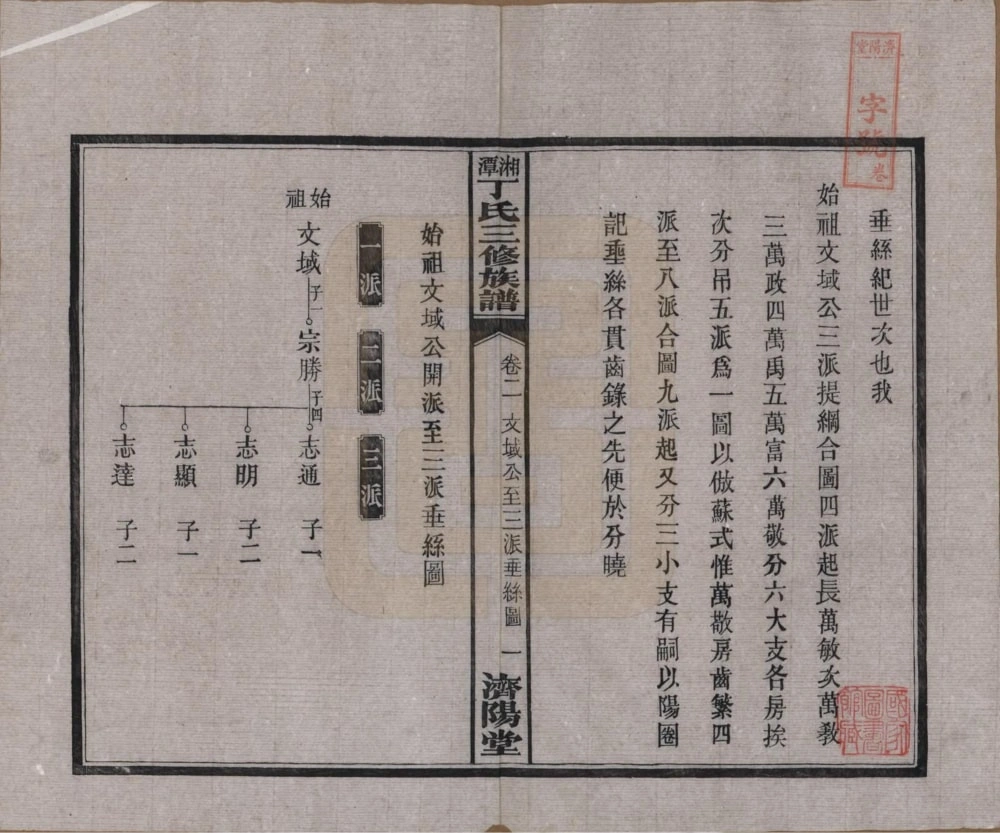 濟陽堂
字號卷
垂絲紀世次也我
始祖文域公三派提綱合圖四派起長萬敏次萬教
三萬政四萬禹五萬富六萬敬分六大支各房挨
次分吊五派爲一圖以倣蘇式惟萬敬房齒繁四
派至八派合圖九派起又分三小支有嗣以陽圈
記垂絲各貫齒錄之先便於分曉
湘潭丁氏三修族譜
卷二 文域公至三派垂絲圖 一
濟陽堂
始祖文域公開派至三派垂絲圖
一派 二派 三派
始祖 文域 子一 宗勝 子四 志通 子一
志明 子二
志顯 子一
志達 子二